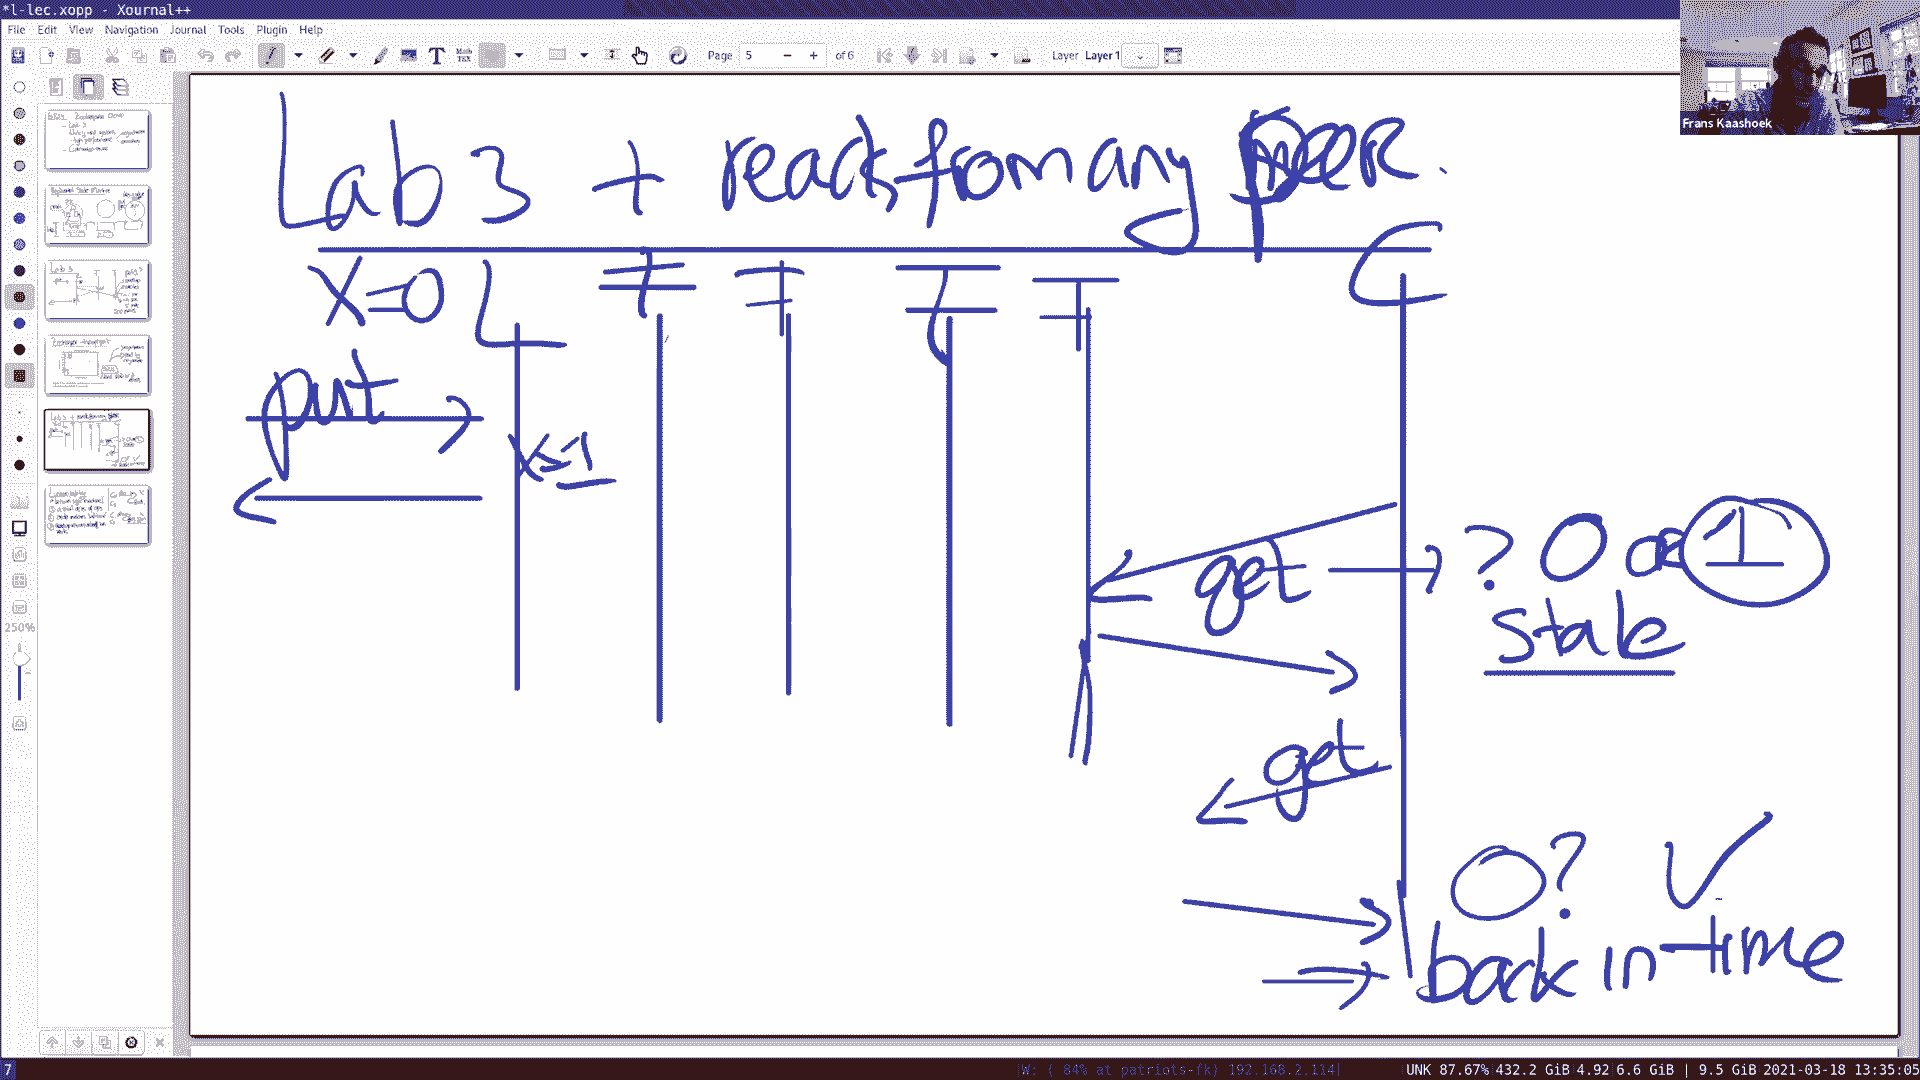 *l-lec.xopp - Xournal++
File Edit View Navigation Journal Tools Plugin Help
Page 5 of 6 Layer Layer 1
Frans Kaashoek
Lab 3 + reads from any peer.
x=0 L F F F F C
put
x=1
get → ? 0 or 1
stale
get
0? ✓
back in time
250%
7
W: ( 84% at patriots-fk) 192.168.2.114| UNK 87.67%|432.2 GiB 4.92|6.6 GiB | 9.5 GiB 2021-03-18 13:35:05